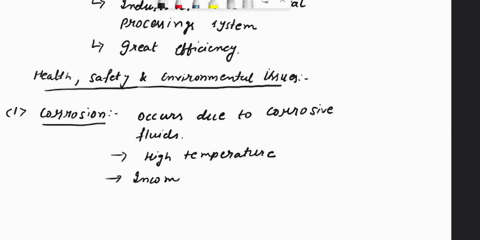 ↳
processings system
↳ Great efficiency.
Health, safety & Environmental Issues:-
(1) Corrosion:- Occurs due to corrosive
fluids.
→ High temperature
→ Incom